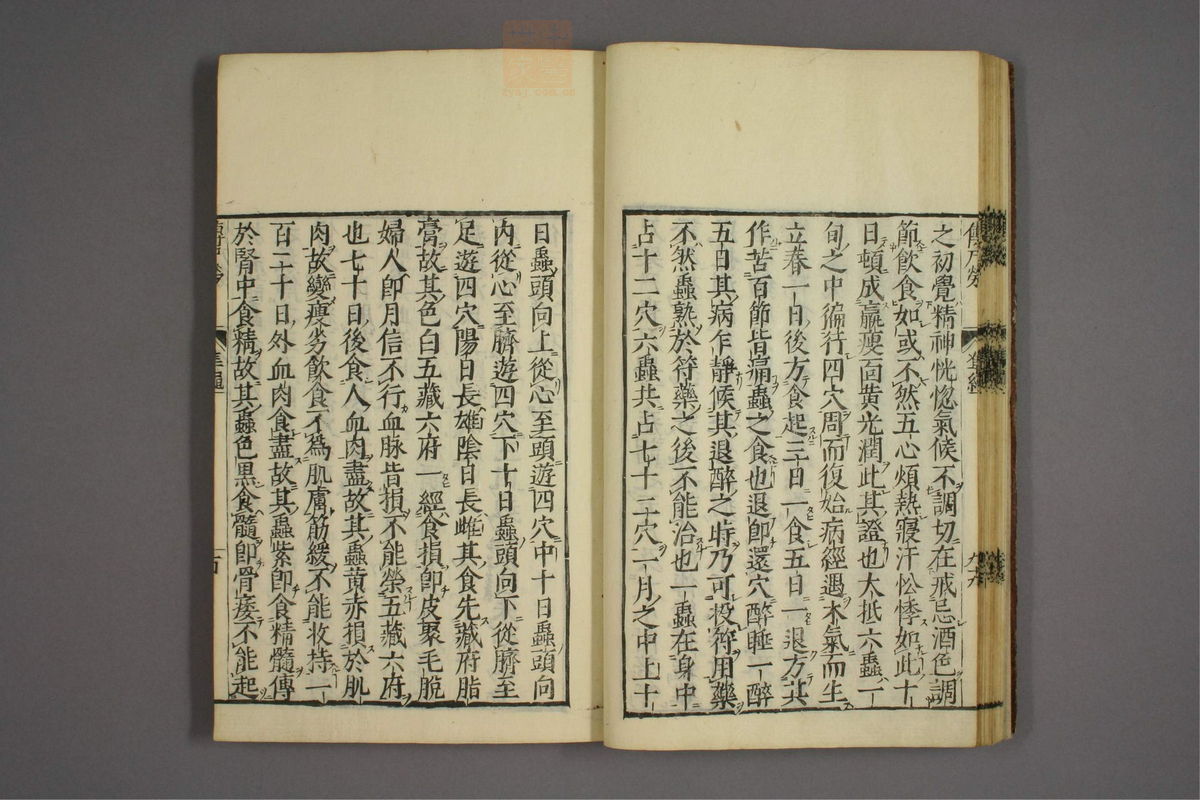 之初覺精神恍惚氣候不調切在戒忌酒色調
節飲食如或不然五心煩熱寢汗忪悸如此十
日頓成羸瘦面黃光潤此其證也太抵六蟲一
旬之中徧行四穴周而復始病經遇木氣而生
立春一日後方食起三日一食五日一退方其
作苦百節皆痛蟲之食也退卽還穴醉睡一醉
五日其病乍靜候其退醉之時乃可投符用藥
不然蟲熟於符藥之後不能治也一蟲在身中
占十二穴六蟲共占七十二穴一月之中上十
日蟲頭向上從心至頭遊四穴中十日蟲頭向
內從心至臍遊四穴下十日蟲頭向下從臍至
足遊四穴陽日長雄陰日長雌其食先藏府脂
膏故其色白五藏六府一經食損卽皮聚毛脫
婦人卽月信不行血脉皆損不能榮五藏六府
也七十日後食人血肉盡故其蟲黃赤損於肌
肉故變瘦劣飲食不爲肌膚筋緩不能收持一
百二十日外血肉食盡故其蟲紫卽食精髓傳
於腎中食精故其蟲色黑食髓卽骨痿不能起